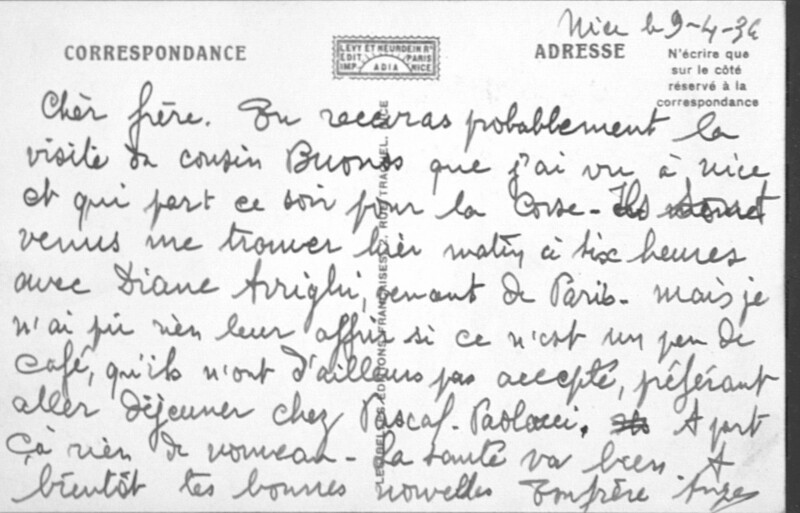 Nice le 9-4-36
CORRESPONDANCE
LEVY ET NEURDEIN Rs
EDIT. PARIS
IMP. ADIA NICE
ADRESSE
N'écrire que
sur le côté
réservé à la
correspondance
Chèr frère. Tu receras probablement la
visite du cousin Buonos que j'ai vu à nice
et qui part ce soir pour la Corse - Ils sont
venus me trouver hier matin à six heures
avec Diane Arrighi, venant de Paris - mais je
n'ai pu rien leur offrir si ce n'est un peu de
café, qu'ils n'ont d'ailleurs pas accepté, préférant
aller déjeuner chez Pascal - Paolacci. A part
çà rien de nouveau - la santé va bien. A
bientôt tes bonnes nouvelles Ton frère Ange